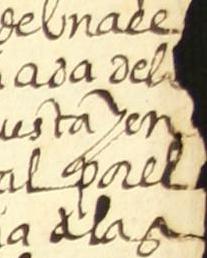 delnace
ada del
uesta yen
al por el
ia de las